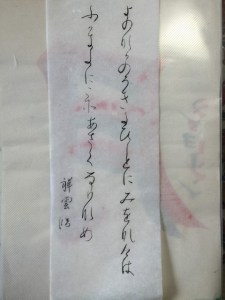 よのなかのうきたひことにみをなけは
ふかきたにこそあさくなりなめ
祥雲